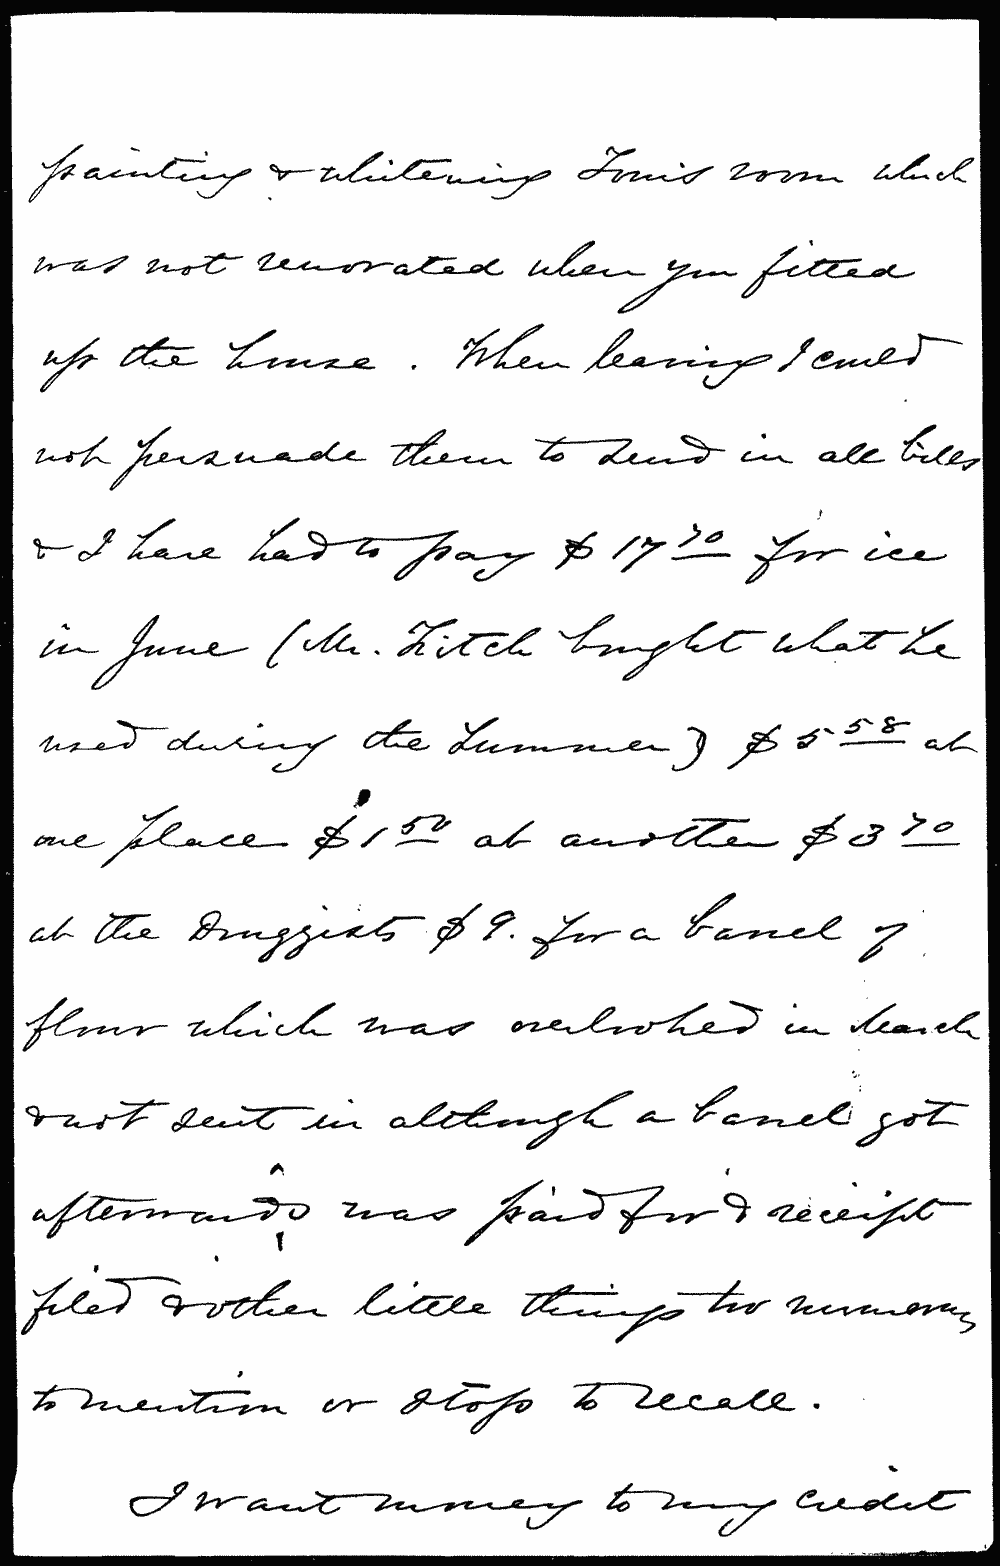 painting & whitening Louis room which
was not renovated when you fitted
up the house. When leaving I could
not persuade them to send in all bills
& I have had to pay $17 70 for ice
in June (Mr. Fitch bought what he
used during the Summer) $5 58 at
one place $1 50 at another $3 70
at the Druggists $9. for a barrel of
flour which was overlooked in March
& not sent in although a barrel got
afterwards was paid for & receipt
filed & other little things too numerous
to mention or stop to recall.
I want money to my credit